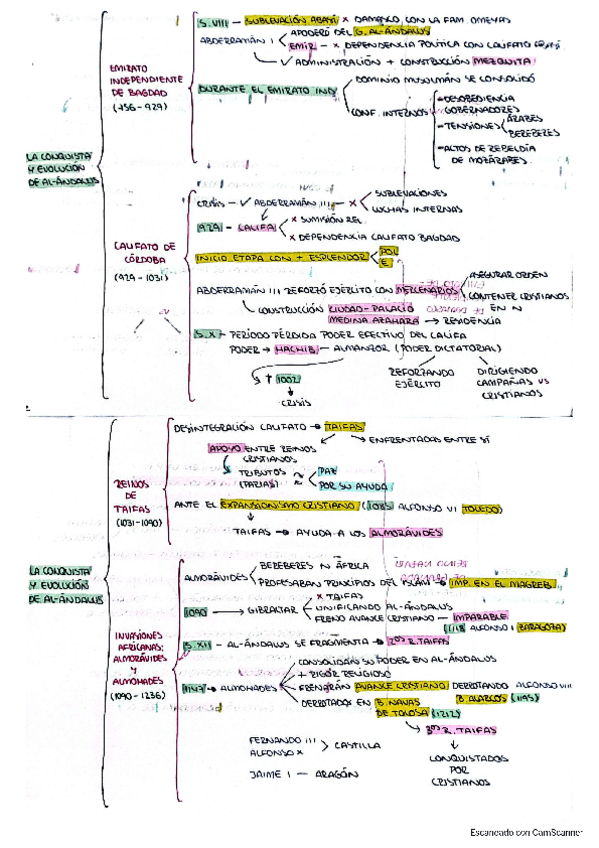 S.VIII — SUBLEVACIÓN ABASÍ x DAMASCO CON LA FAM. OMEYAS
ABDERRAMÁN I
APODERÓ DEL G. AL-ÁNDALUS
EMIR — x DEPENDENCIA POLÍTICA CON CALIFATO
✓ ADMINISTRACIÓN + CONSTRUCCIÓN MEZQUITA
EMIRATO
INDEPENDIENTE
DE BAGDAD
(756-929)
DURANTE EL EMIRATO IND
DOMINIO MUSULMÁN SE CONSOLIDÓ
CONF. INTERNOS
-DESOBEDIENCIA
GOBERNADORES
-TENSIONES
ÁRABES
BEREBERES
-ACTOS DE REBELDÍA
DE MOZÁRABES.
LA CONQUISTA
Y EVOLUCIÓN
DE AL-ÁNDALUS
CALIFATO DE
CÓRDOBA
(929-1031)
CRISIS — ✓ ABDERRAMÁN III — x
SUBLEVACIONES
LUCHAS INTERNAS
929 — CALIFA
x SUMISIÓN REL.
x DEPENDENCIA CALIFATO BAGDAD
INICIO ETAPA CON + ESPLENDOR
POL
E
ABDERRAMÁN III REFORZÓ EJÉRCITO CON MERCENARIOS
ASEGURAR ORDEN
CONTENER CRISTIANOS
EN N
CONSTRUCCIÓN CIUDAD-PALACIO
MEDINA AZAHARA → RESIDENCIA
S.X - PERÍODO PÉRDIDA PODER EFECTIVO DEL CALIFA
PODER → HACHIB — ALMANZOR (PODER DICTATORIAL)
REFORZANDO
EJÉRCITO
DIRIGIENDO
CAMPAÑAS VS
CRISTIANOS
† 1002
CRISIS
DESINTEGRACIÓN CALIFATO → TAIFAS
ENFRENTADAS ENTRE SÍ
APOYO ENTRE REINOS
CRISTIANOS
TRIBUTOS
(PARIAS)
PAZ
POR SU AYUDA
REINOS
DE
TAIFAS
(1031-1090)
ANTE EL EXPANSIONISMO CRISTIANO (1085 ALFONSO VI TOLEDO)
TAIFAS → AYUDA A LOS ALMORÁVIDES
LA CONQUISTA
Y EVOLUCIÓN
DE AL-ÁNDALUS
INVASIONES
AFRICANAS:
ALMORÁVIDES
Y
ALMOHADES
(1090-1236)
ALMORÁVIDES
BEREBERES N ÁFRICA
PROFESABAN PRINCIPIOS DEL ISLAM → IMP. EN EL MAGREB
1090 → GIBRALTAR
x TAIFAS
UNIFICANDO AL-ÁNDALUS
FRENO AVANCE CRISTIANO — IMPARABLE
(1118 ALFONSO I ZARAGOZA)
S.XII - AL-ÁNDALUS SE FRAGMENTA → 2OS R.TAIFAS
1147 → ALMOHADES
CONSOLIDAN SU PODER EN AL-ÁNDALUS
+ RIGOR RELIGIOSO
FRENARÁN AVANCE CRISTIANO DERROTANDO ALFONSO VIII
B. ALARCOS (1195)
DERROTADOS EN B. NAVAS
DE TOLOSA (1212)
3OS R. TAIFAS
CONQUISTADOS
POR
CRISTIANOS
FERNANDO III
ALFONSO X
CASTILLA
JAIME I — ARAGÓN
Escaneado con CamScanner